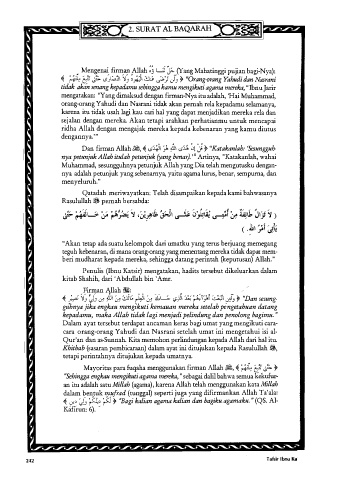 2. SURAT AL BAQARAH
Mengenai firman Allah جَلَّ ثَنَاؤُهُ (Yang Mahatinggi pujian bagi-Nya):
﴿ وَلَن تَرْضَىٰ عَنكَ الْيَهُودُ وَلَا النَّصَارَىٰ حَتَّىٰ تَتَّبِعَ مِلَّتَهُمْ ﴾ "Orang-orang Yahudi dan Nasrani
tidak akan senang kepadamu sehingga kamu mengikuti agama mereka," Ibnu Jarir
mengatakan: "Yang dimaksud dengan firman-Nya itu adalah, 'Hai Muhammad,
orang-orang Yahudi dan Nasrani tidak akan pernah rela kepadamu selamanya,
karena itu tidak usah lagi kau cari hal yang dapat menjadikan mereka rela dan
sejalan dengan mereka. Akan tetapi arahkan perhatianmu untuk mencapai
ridha Allah dengan mengajak mereka kepada kebenaran yang kamu diutus
dengannya.'"
Dan firman Allah ﷻ, ﴿ قُلْ إِنَّ هُدَى اللَّهِ هُوَ الْهُدَىٰ ﴾ "Katakanlah: 'Sesungguh-
nya petunjuk Allah itulah petunjuk (yang benar).'" Artinya, "Katakanlah, wahai
Muhammad, sesungguhnya petunjuk Allah yang Dia telah mengutusku dengan-
nya adalah petunjuk yang sebenarnya, yaitu agama lurus, benar, sempurna, dan
menyeluruh."
Qatadah meriwayatkan: Telah disampaikan kepada kami bahwasanya
Rasulullah ﷺ pernah bersabda:
( لَا تَزَالُ طَائِفَةٌ مِنْ أُمَّتِي يُقَاتِلُونَ عَلَى الْحَقِّ ظَاهِرِينَ، لَا يَضُرُّهُمْ مَنْ خَالَفَهُمْ حَتَّى
يَأْتِيَ أَمْرُ اللَّهِ. )
"Akan tetap ada suatu kelompok dari umatku yang terus berjuang memegang
teguh kebenaran, di mana orang-orang yang menentang mereka tidak dapat mem-
beri mudharat kepada mereka, sehingga datang perintah (keputusan) Allah."
Penulis (Ibnu Katsir) mengatakan, hadits tersebut dikeluarkan dalam
kitab Shahih, dari 'Abdullah bin 'Amr.
Firman Allah ﷻ:
﴿ وَلَئِنِ اتَّبَعْتَ أَهْوَاءَهُم بَعْدَ الَّذِي جَاءَكَ مِنَ الْعِلْمِ مَا لَكَ مِنَ اللَّهِ مِن وَلِيٍّ وَلَا نَصِيرٍ ﴾ "Dan sesung-
guhnya jika engkau mengikuti kemauan mereka setelah pengetahuan datang
kepadamu, maka Allah tidak lagi menjadi pelindung dan penolong bagimu."
Dalam ayat tersebut terdapat ancaman keras bagi umat yang mengikuti cara-
cara orang-orang Yahudi dan Nasrani setelah umat ini mengetahui isi al-
Qur'an dan as-Sunnah. Kita memohon perlindungan kepada Allah dari hal itu.
Khithab (sasaran pembicaraan) dalam ayat ini ditujukan kepada Rasulullah ﷺ,
tetapi perintahnya ditujukan kepada umatnya.
Mayoritas para fuqaha menggunakan firman Allah ﷻ, ﴿ حَتَّىٰ تَتَّبِعَ مِلَّتَهُمْ ﴾
"Sehingga engkau mengikuti agama mereka," sebagai dalil bahwa semua kekufur-
an itu adalah satu Millah (agama), karena Allah telah menggunakan kata Millah
dalam bentuk mufrad (tunggal) seperti juga yang difirmankan Allah Ta'ala:
﴿ لَكُمْ دِينُكُمْ وَلِيَ دِينِ ﴾ "Bagi kalian agama kalian dan bagiku agamaku." (QS. Al-
Kafirun: 6).
242
Tafsir Ibnu Ka